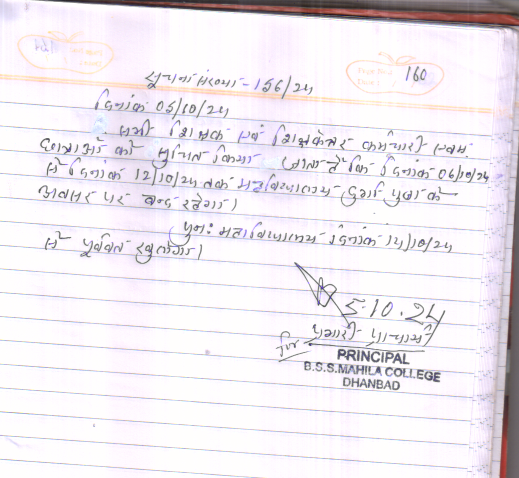 160
सूचना संख्या - 156/24
दिनांक 05/10/24
सभी शिक्षक एवं शिक्षकेतर कर्मचारी एवम्
छात्राओं को सूचित किया जाता है कि दिनांक 06/10/24
से दिनांक 12/10/24 तक महाविद्यालय दुर्गा पुजा के
अवसर पर बन्द रहेगा।
पुनः महाविद्यालय दिनांक 14/10/24
से पूर्ववत खुलेगा।
5.10.24
प्रभारी प्राचार्य
For
PRINCIPAL
B.S.S.MAHILA COLLEGE
DHANBAD